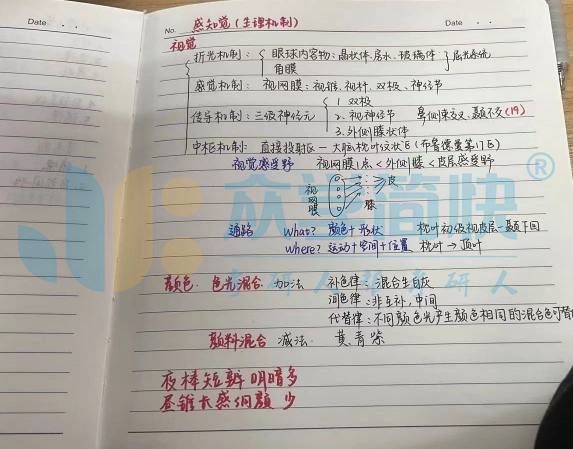 Date
No. 感知觉(生理机制) Date
视觉
折光机制: 眼球内容物:晶状体.房水.玻璃体 屈光系统
角膜
感觉机制: 视网膜:视锥、视杆、双极、神经节
传导机制:三级神经元 1. 双极
2. 视神经节 鼻侧束交叉.颞不交(19)
3. 外侧膝状体
中枢机制: 直接投射区—大脑枕叶纹状区(布鲁德曼第17区)
视觉感受野 视网膜1点<外侧膝<皮层感受野
视网膜 皮
膝
通路 What? 颜色+形状 枕叶初级视皮层→颞下回
Where? 运动+空间+位置 枕叶→顶叶
颜色. 色光混合 加法 补色律:混合生白灰
间色律:非互补,中间
代替律:不同颜色光产生颜色相同的混合色可替
颜料混合 减法. 黄青紫
夜棒短辨明暗多
昼锥长感细颜少
众论简快®
考研人帮考研人